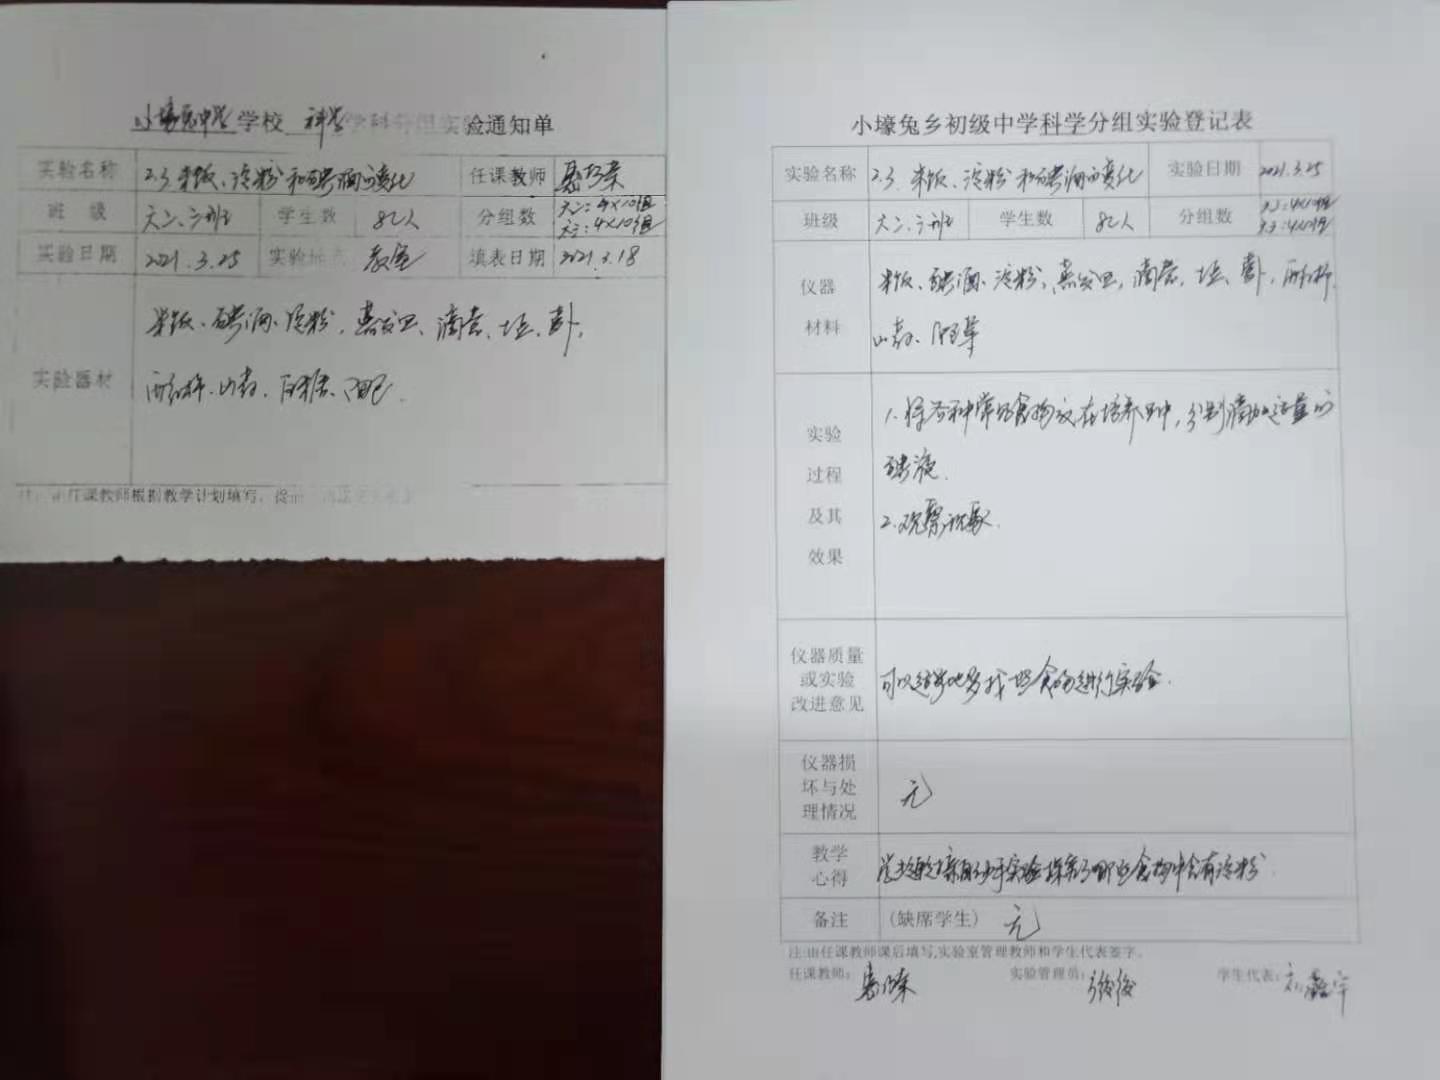 小壕兔中学学校 科学学科分组实验通知单
实验名称 2.3 米饭、淀粉和碘酒的变化 任课教师
班 级 六二、六三班 学生数 80人 分组数 六二:4×10组
六三:4×10组
实验日期 2021.3.25 实验地点 教室 填表日期 2021.3.18
实验器材 米饭、碘酒、淀粉、蒸发皿、滴管、土豆、萝卜、
山药、白糖、
注:由任课教师根据教学计划填写,提前
小壕兔乡初级中学科学分组实验登记表
实验名称 2.3 米饭、淀粉和碘酒的变化 实验日期 2021.3.25
班级 六二、六三班 学生数 80人 分组数 六二:4×10组
六三:4×10组
仪器
材料
米饭、碘酒、淀粉、蒸发皿、滴管、土豆、萝卜、
山药、
实验
过程
及其
效果
1.将各种常见食物放在培养皿中,分别滴加适量的
碘液.
2.观察现象.
仪器质量
或实验
改进意见
可以适当地多找些食物进行实验.
仪器损
坏与处
理情况
无
教学
心得
学生通过亲自动手实验探索了哪些食物中含有淀粉.
备注 (缺席学生) 无
注:由任课教师课后填写,实验室管理教师和学生代表签字。
任课教师: 实验管理员: 学生代表: